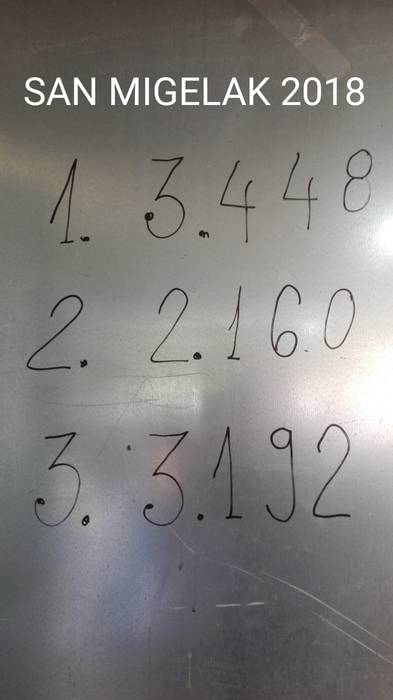 SAN MIGELAK 2018
1. 3.448
2. 2.160
3. 3.192